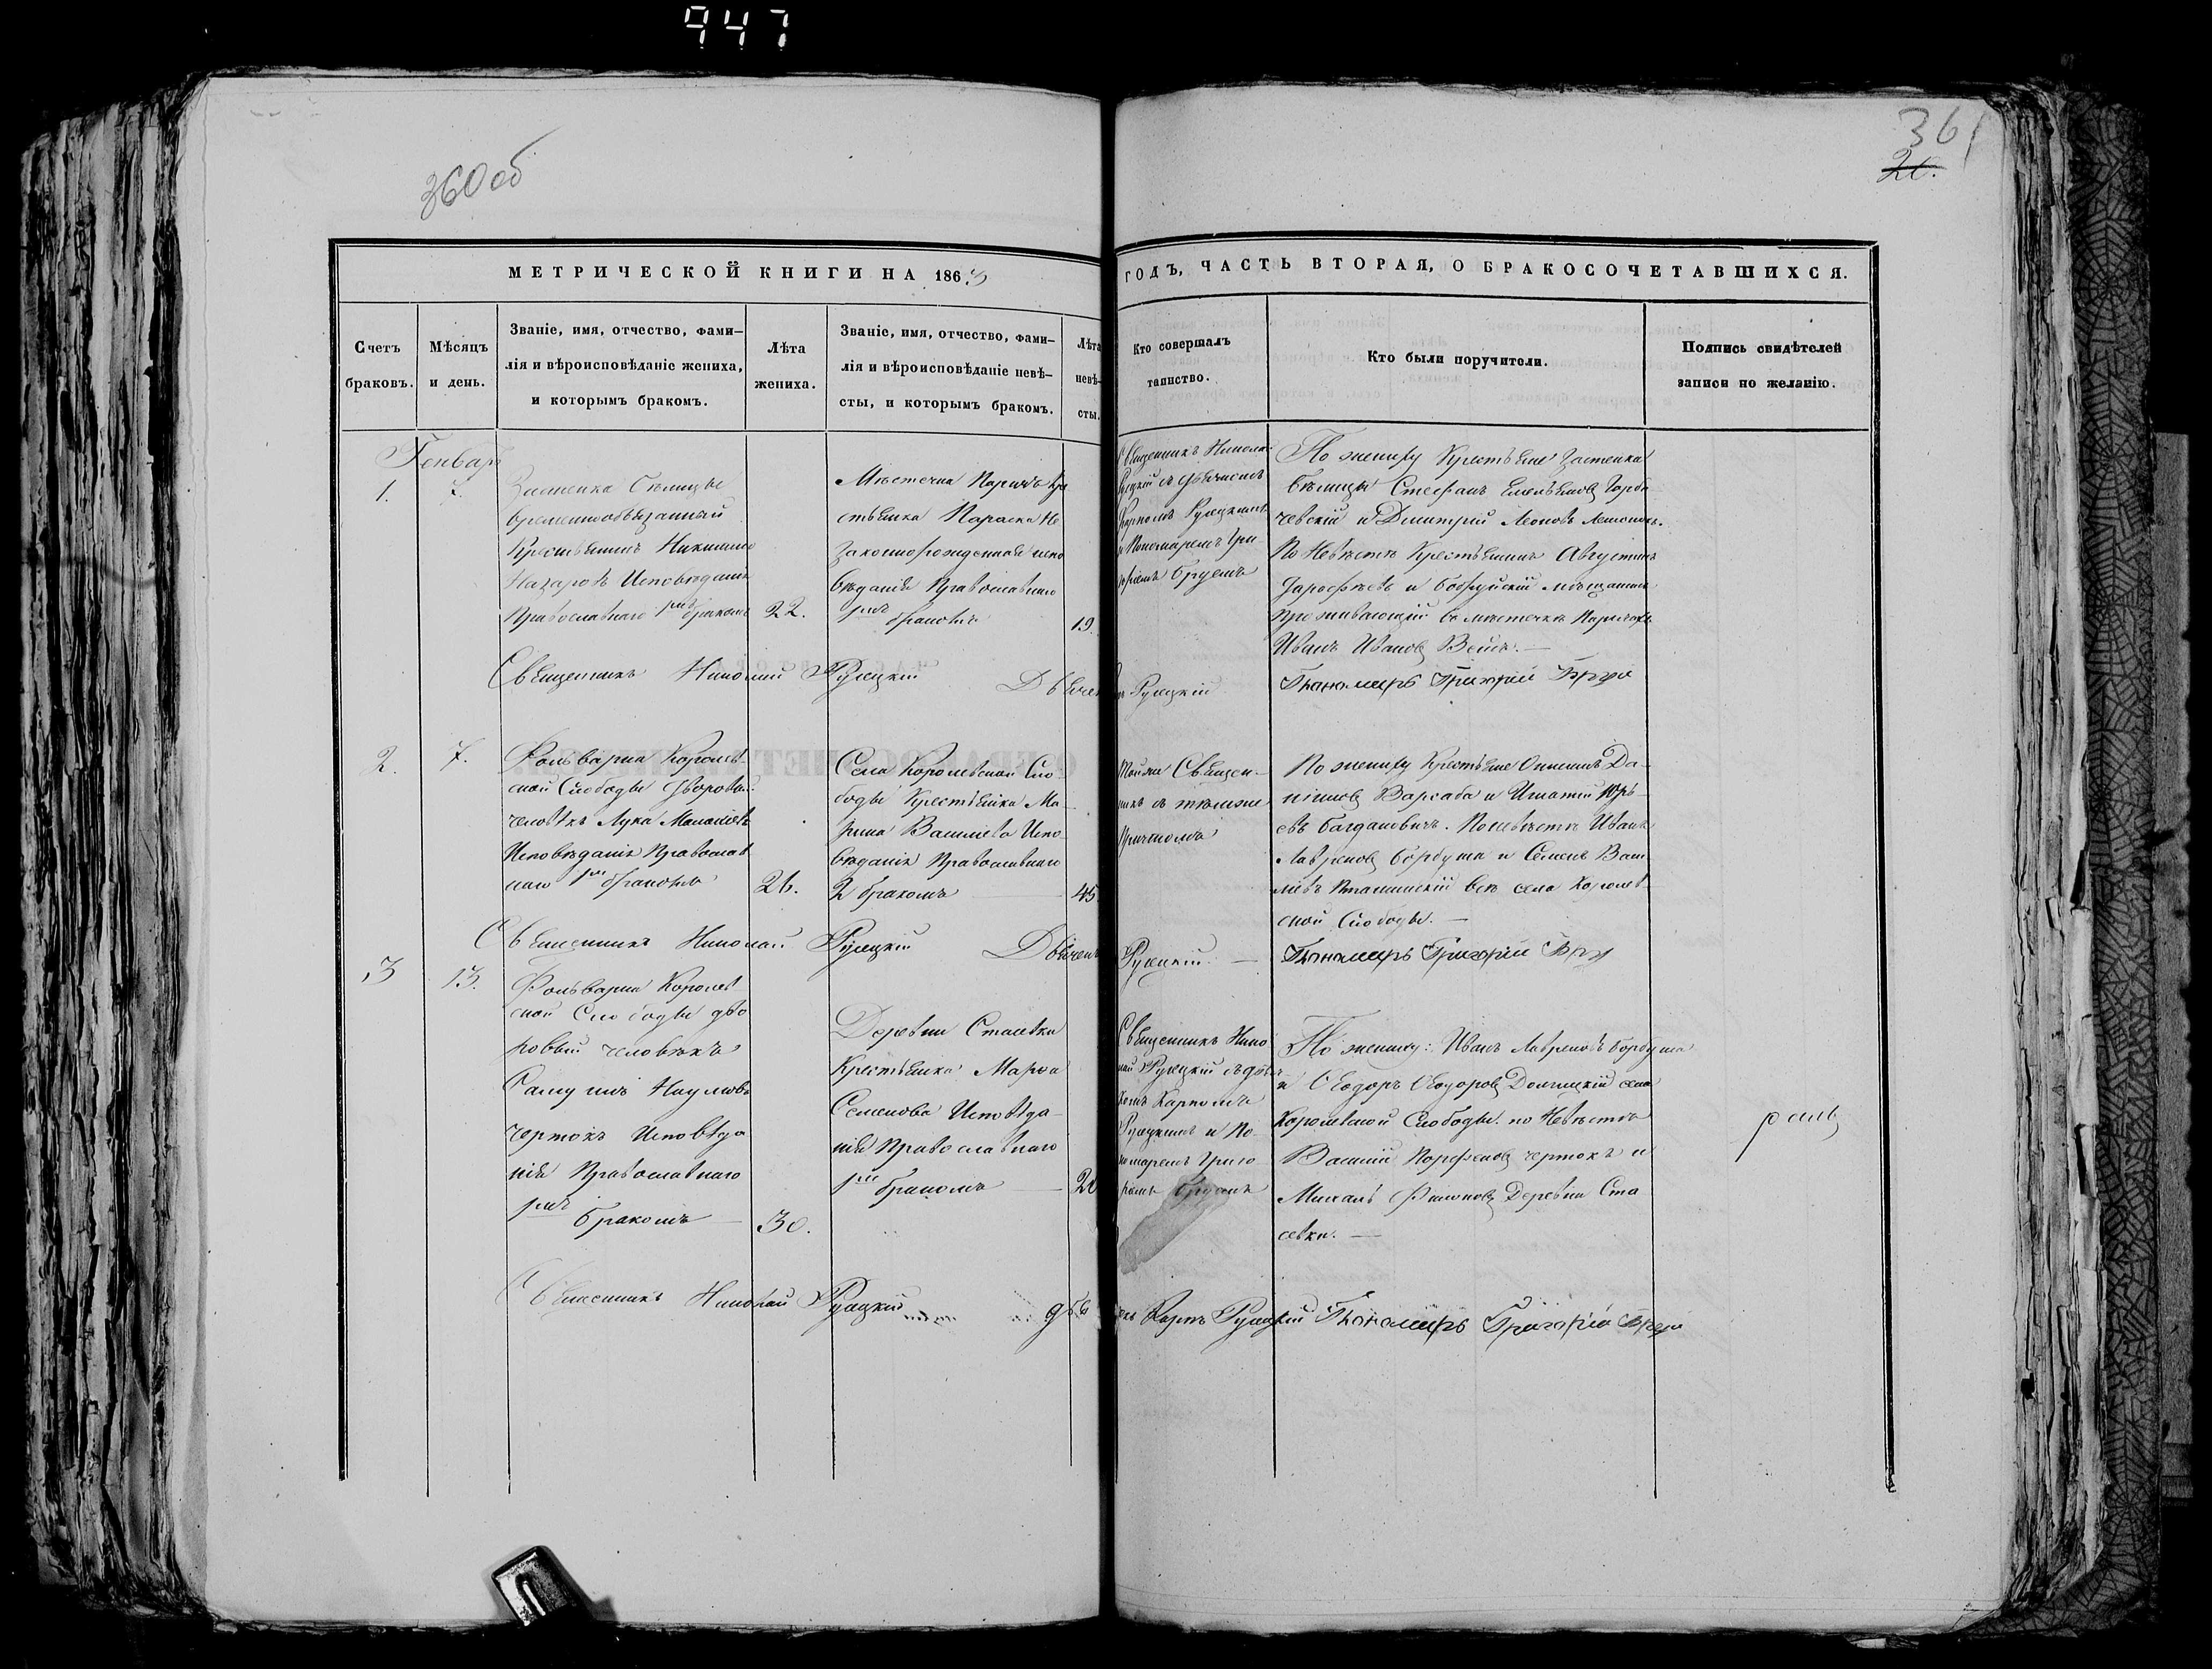 947
360 об
361
20.
МЕТРИЧЕСКОЙ КНИГИ НА 1863
ГОДЪ, ЧАСТЬ ВТОРАЯ, О БРАКОСОЧЕТАВШИХСЯ.
Счетъ
браковъ.
Мѣсяцъ
и день.
Званіе, имя, отчество, фами-
лія и вѣроисповѣданіе жениха,
и которымъ бракомъ.
Лѣта
жениха.
Званіе, имя, отчество, фами-
лія и вѣроисповѣданіе невѣ-
сты, и которымъ бракомъ.
Лѣта
невѣ-
сты.
Кто совершалъ
таинство.
Кто были поручители.
Подпись свидѣтелей
записи по желанію.
Генварь
1.
Застенка Бѣлицы
временнообязанный
Крестьянинъ
Назаровъ Исповѣданія
Православнаго 1мъ бракомъ
22.
Мѣстечка Паричъ Кре
стьянка Параска Не
законнорожденная испо
вѣданія Православнаго
1мъ бракомъ
19.
Священникъ Никола
Руецкій съ Дьячкомъ
Карпомъ Руецкимъ
и Пономаремъ Гри-
горіемъ
По жениху Крестьяне Застенка
Бѣлицы Стефанъ Емельяновъ Горба
чевскій и Димитрій Леоновъ
По Невѣстѣ Крестьянинъ Августинъ
и Бобруйскій мѣщанинъ
проживающій въ мѣстечкѣ Паричахъ
Иванъ Ивановъ
Священникъ Николай Руецкій Дьяче
Руецкій
Пономарь Григорій
2.
7.
Фольварка Королев-
ской Слободы дворовый
человѣкъ Лука
Исповѣданія Православ
наго 1мъ бракомъ
26.
Села Королевской Сло
боды Крестьянка Ма-
рина Васильева Испо-
вѣданія Православнаго
2 бракомъ
45
Тойже Священ-
никъ съ тѣмже
Причтомъ
По жениху Крестьяне Да-
ниловъ Варсаба и Игнатій Юрь-
евъ Богдановичъ. По невѣстѣ Иванъ
Лавреновъ Борбута и Семенъ Васи
льевъ всѣ села Королев-
ской Слободы.
Священникъ Николай Руецкій Дьячекъ
Руецкій
Пономарь Григорій
3
13.
Фольварка Королев
ской Слободы дво
ровый человѣкъ
Самуилъ Наумовъ
Чертокъ Исповѣда
нія Православнаго
1мъ
бракомъ
30.
Деревни Стасевки
Крестьянка Марѳа
Семенова Исповѣда-
нія Православнаго
1мъ бракомъ
20
Священникъ Нико
лай Руецкій съ дьяч
комъ Карпомъ
Руецкимъ и По-
номаремъ Григо
По жениху: Иванъ Лавреновъ Борбута
и Ѳеодоръ Ѳеодоровъ села
Королевской Слободы. по Невѣстѣ
Василій Чертокъ и
Михаилъ Филоновъ Деревни Ста
севки.
Священникъ Николай Руецкій
Карпъ Руецкій Пономарь Григорій